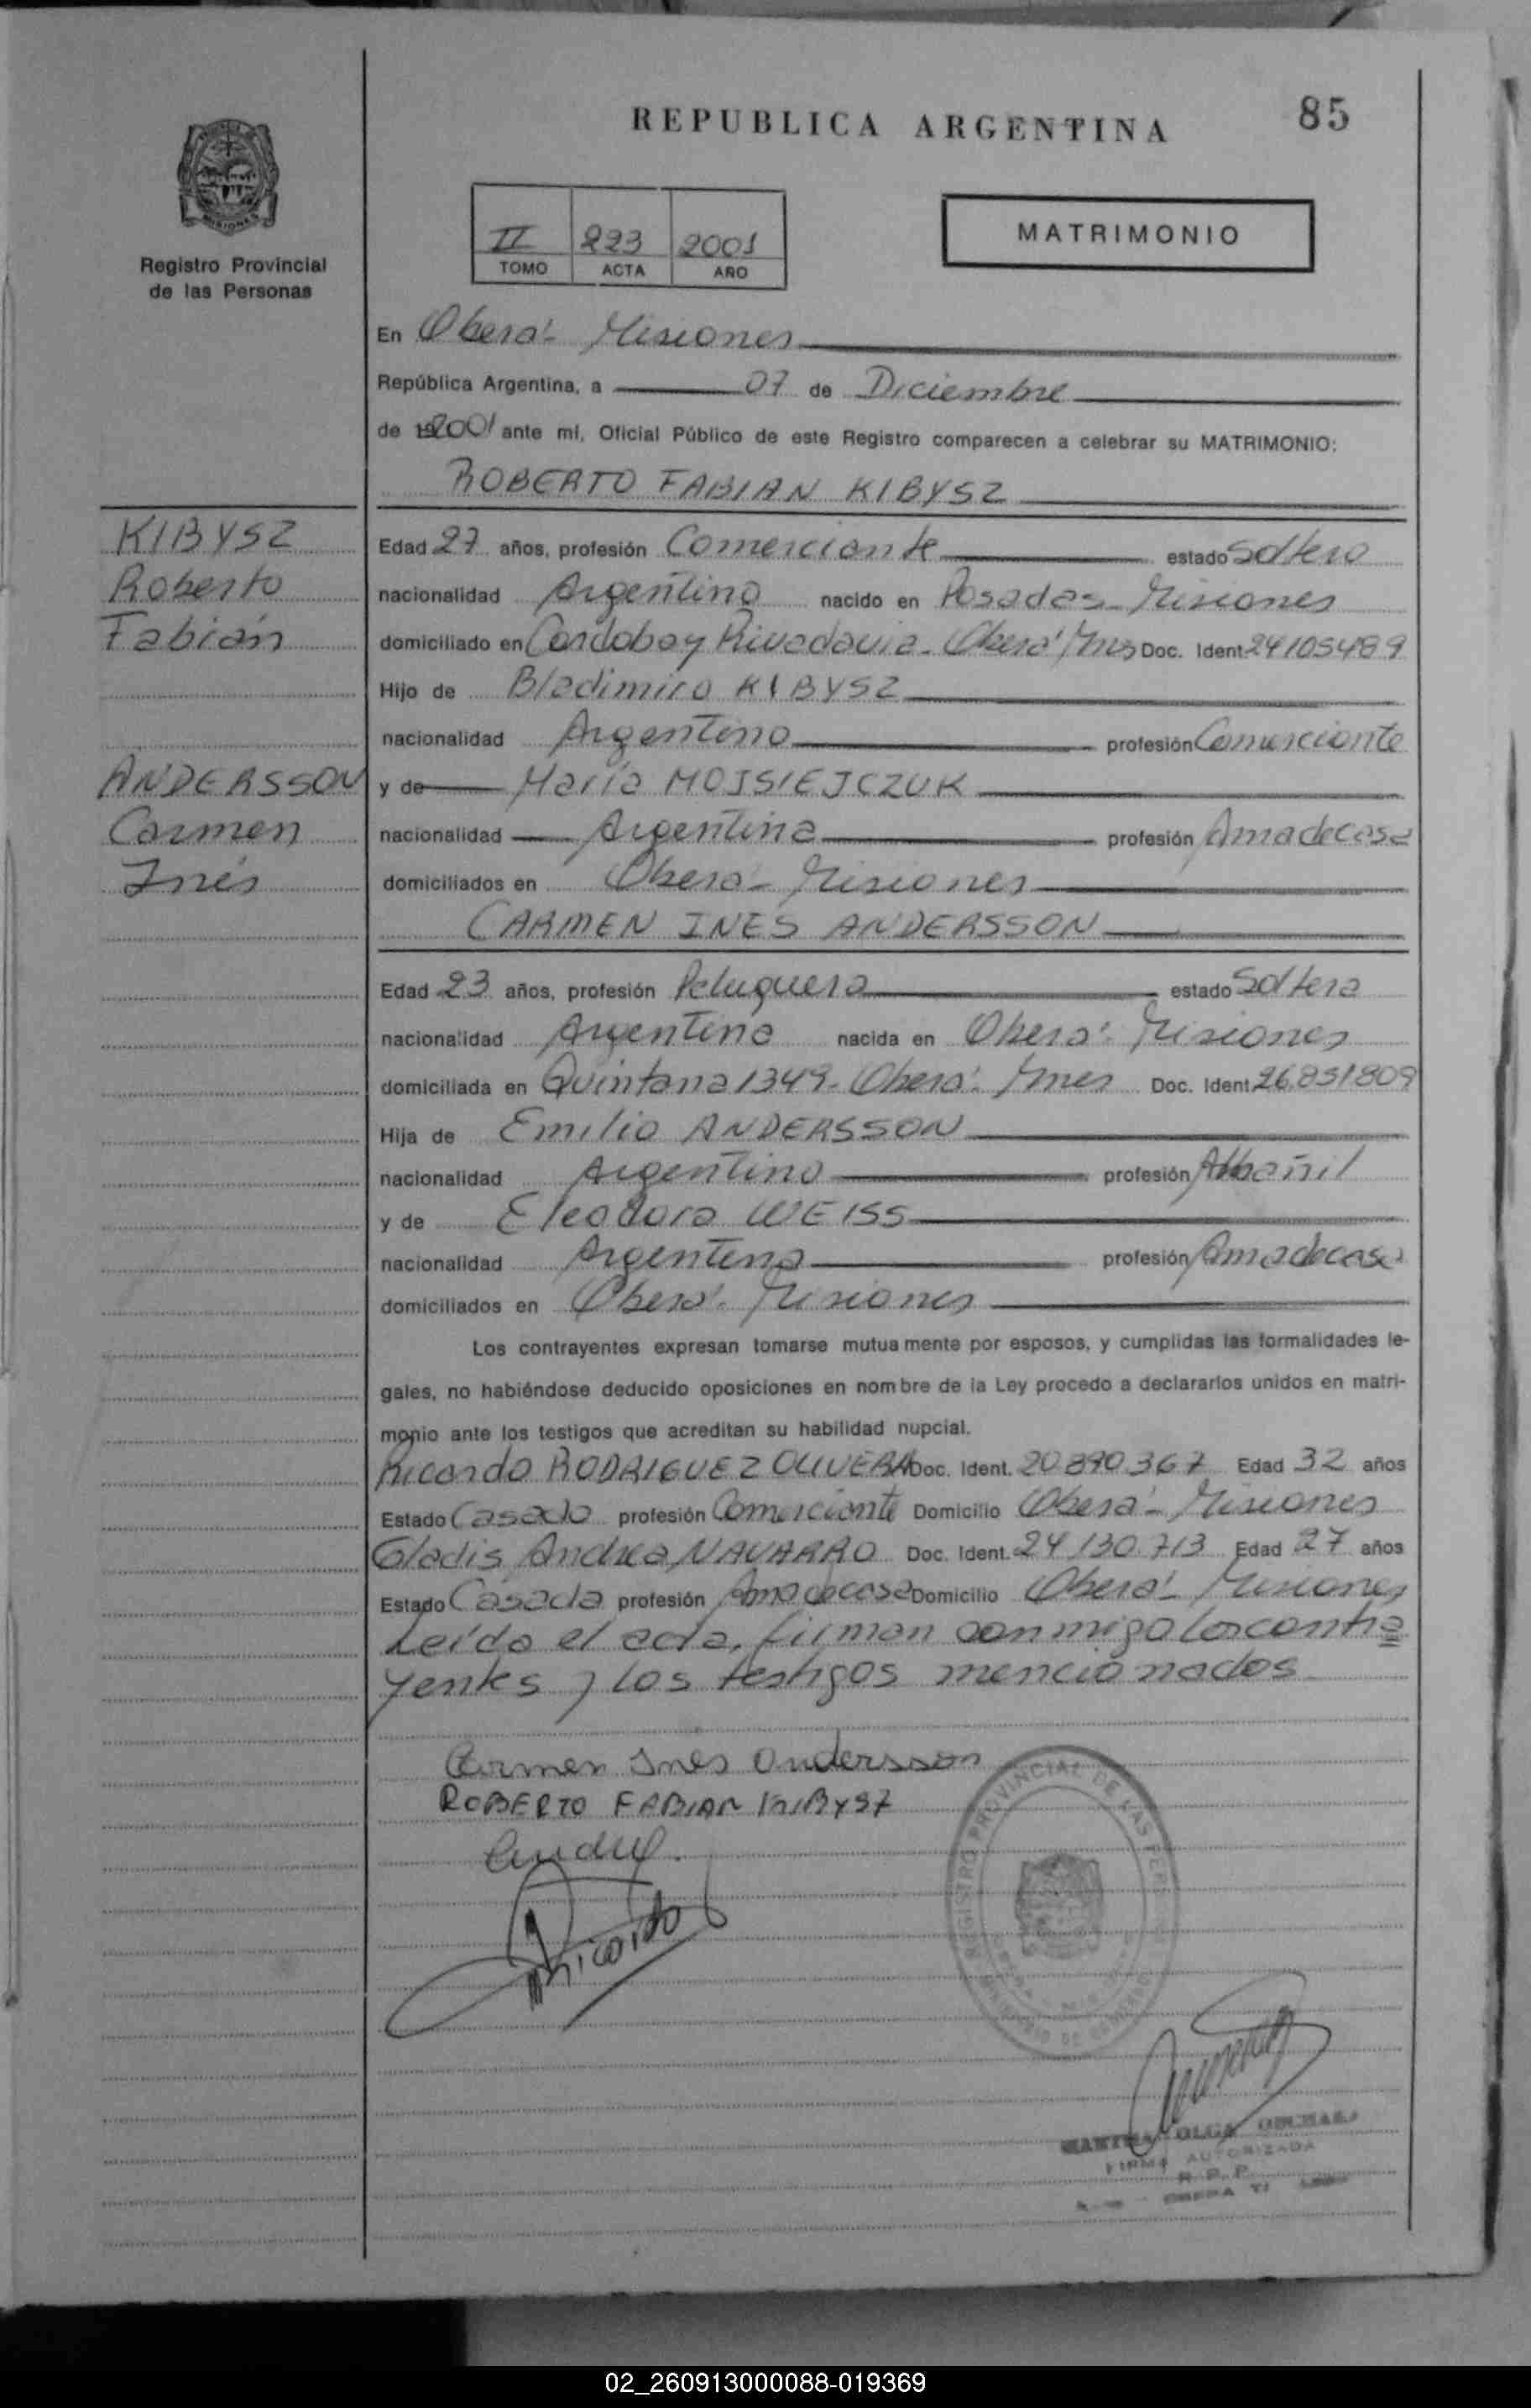 REPUBLICA ARGENTINA
85
MISIONES
Registro Provincial
de las Personas
II 223 2001
TOMO ACTA AÑO
MATRIMONIO
En Oberá - Misiones
República Argentina, a 07 de Diciembre
de 192001 ante mí, Oficial Público de este Registro comparecen a celebrar su MATRIMONIO:
ROBERTO FABIAN KIBYSZ
KIBYSZ
Roberto
Fabián
Edad 27 años, profesión Comerciante estado Soltero
nacionalidad Argentino nacido en Posadas - Misiones
domiciliado en Cordoba y Rivadavia - Oberá Mnes Doc. Ident. 24105489
Hijo de Bladimiro KIBYSZ
nacionalidad Argentino profesión Comerciante
ANDERSSON
Carmen
Inés
y de María MOJSIEJCZUK
nacionalidad Argentina profesión Ama de casa
domiciliados en Oberá - Misiones
CARMEN INES ANDERSSON
Edad 23 años, profesión Peluquera estado Soltera
nacionalidad Argentina nacida en Oberá - Misiones
domiciliada en Quintana 1349 - Oberá - Mnes Doc. Ident. 26.831809
Hija de Emilio ANDERSSON
nacionalidad Argentino profesión Albañil
y de Eleodora WEISS
nacionalidad Argentina profesión Ama de casa
domiciliados en Oberá - Misiones
Los contrayentes expresan tomarse mutuamente por esposos, y cumplidas las formalidades le-
gales, no habiéndose deducido oposiciones en nombre de la Ley procedo a declararlos unidos en matri-
monio ante los testigos que acreditan su habilidad nupcial.
Ricardo RODRIGUEZ OLIVERA Doc. Ident. 20.890.367 Edad 32 años
Estado Casado profesión Comerciante Domicilio Oberá - Misiones
Gladis Andrea NAVARRO Doc. Ident. 24.130.713 Edad 27 años
Estado Casada profesión Ama de casa Domicilio Oberá - Misiones
Leída el acta, firman conmigo los contra
yentes y los testigos mencionados
Carmen Ines Andersson
ROBERTO FABIAN KIBYSZ
Ricardo
REGISTRO PROVINCIAL DE LAS PERSONAS
MINISTERIO DE GOBIERNO
OLGA
FIRMA AUTORIZADA
R. P. P.
02_260913000088-019369